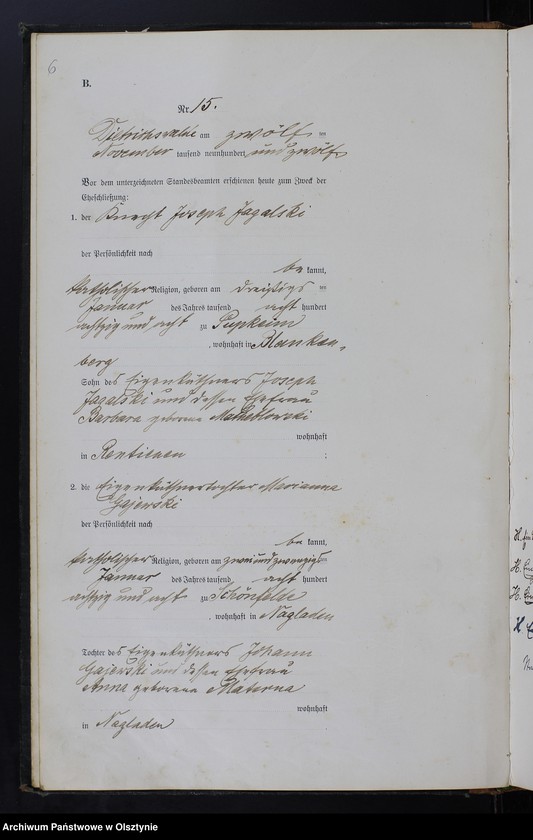 6
B.
Nr. 15.
Dietrichswalde am zwölf ten
November tausend neunhundert und zwölf
Vor dem unterzeichneten Standesbeamten erschienen heute zum Zweck der
Eheschließung:
1. der Knecht Joseph Jagalski
der Persönlichkeit nach
be kannt,
katholischer Religion, geboren am dreißigs ten
Januar des Jahres tausend acht hundert
achtzig und acht zu Pupkeim
, wohnhaft in Blanken-
berg
Sohn des Eigenkäthners Joseph
Jagalski und dessen Ehefrau
Barbara geborene
wohnhaft
in Rentienen ;
2. die Eigenkäthnertochter Marianna
Gajewski
der Persönlichkeit nach
be kannt,
katholischer Religion, geboren am zwei und zwanzigs ten
Januar des Jahres tausend acht hundert
achtzig und acht zu Schönfelde
, wohnhaft in Nagladen
Tochter des Eigenkäthners Johann
Gajewski und dessen Ehefrau
Anna geborene Materna
wohnhaft
in Nagladen
H.
H.
H.
H.
Archiwum Państwowe w Olsztynie